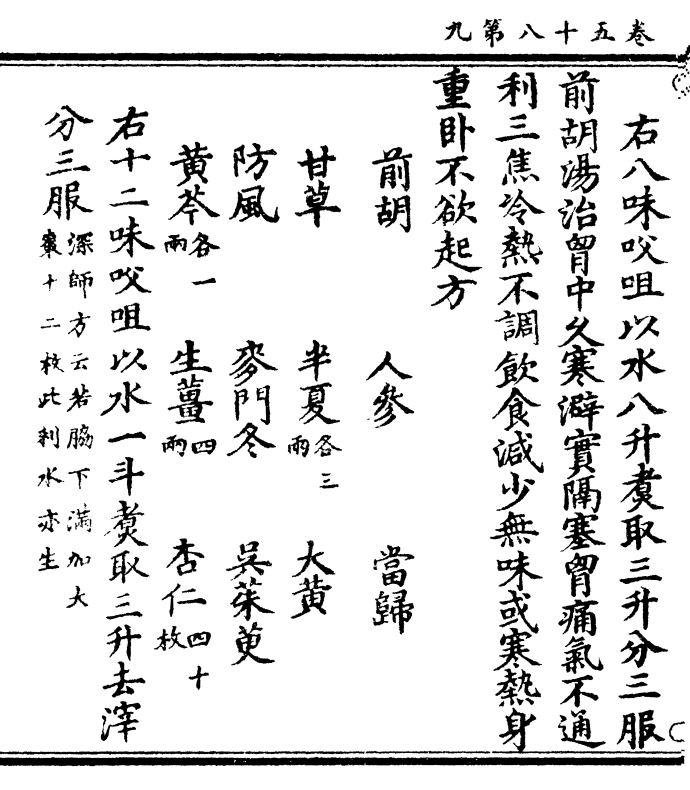 卷五十八第九
右八味㕮咀以水八升煑取三升分三服
前胡湯治胷中久寒澼實隔塞胷痛氣不通
利三焦冷熱不調飲食減少無味或寒熱身
重卧不欲起方
前胡　人參　當歸
甘草　半夏各三兩　大黄
防風　麥門冬　吳茱萸
黄芩各一兩　生薑四兩　杏仁四十枚
右十二味㕮咀以水一斗煑取三升去滓
分三服深師方云若脇下滿加大
棗十二枚此利水亦生